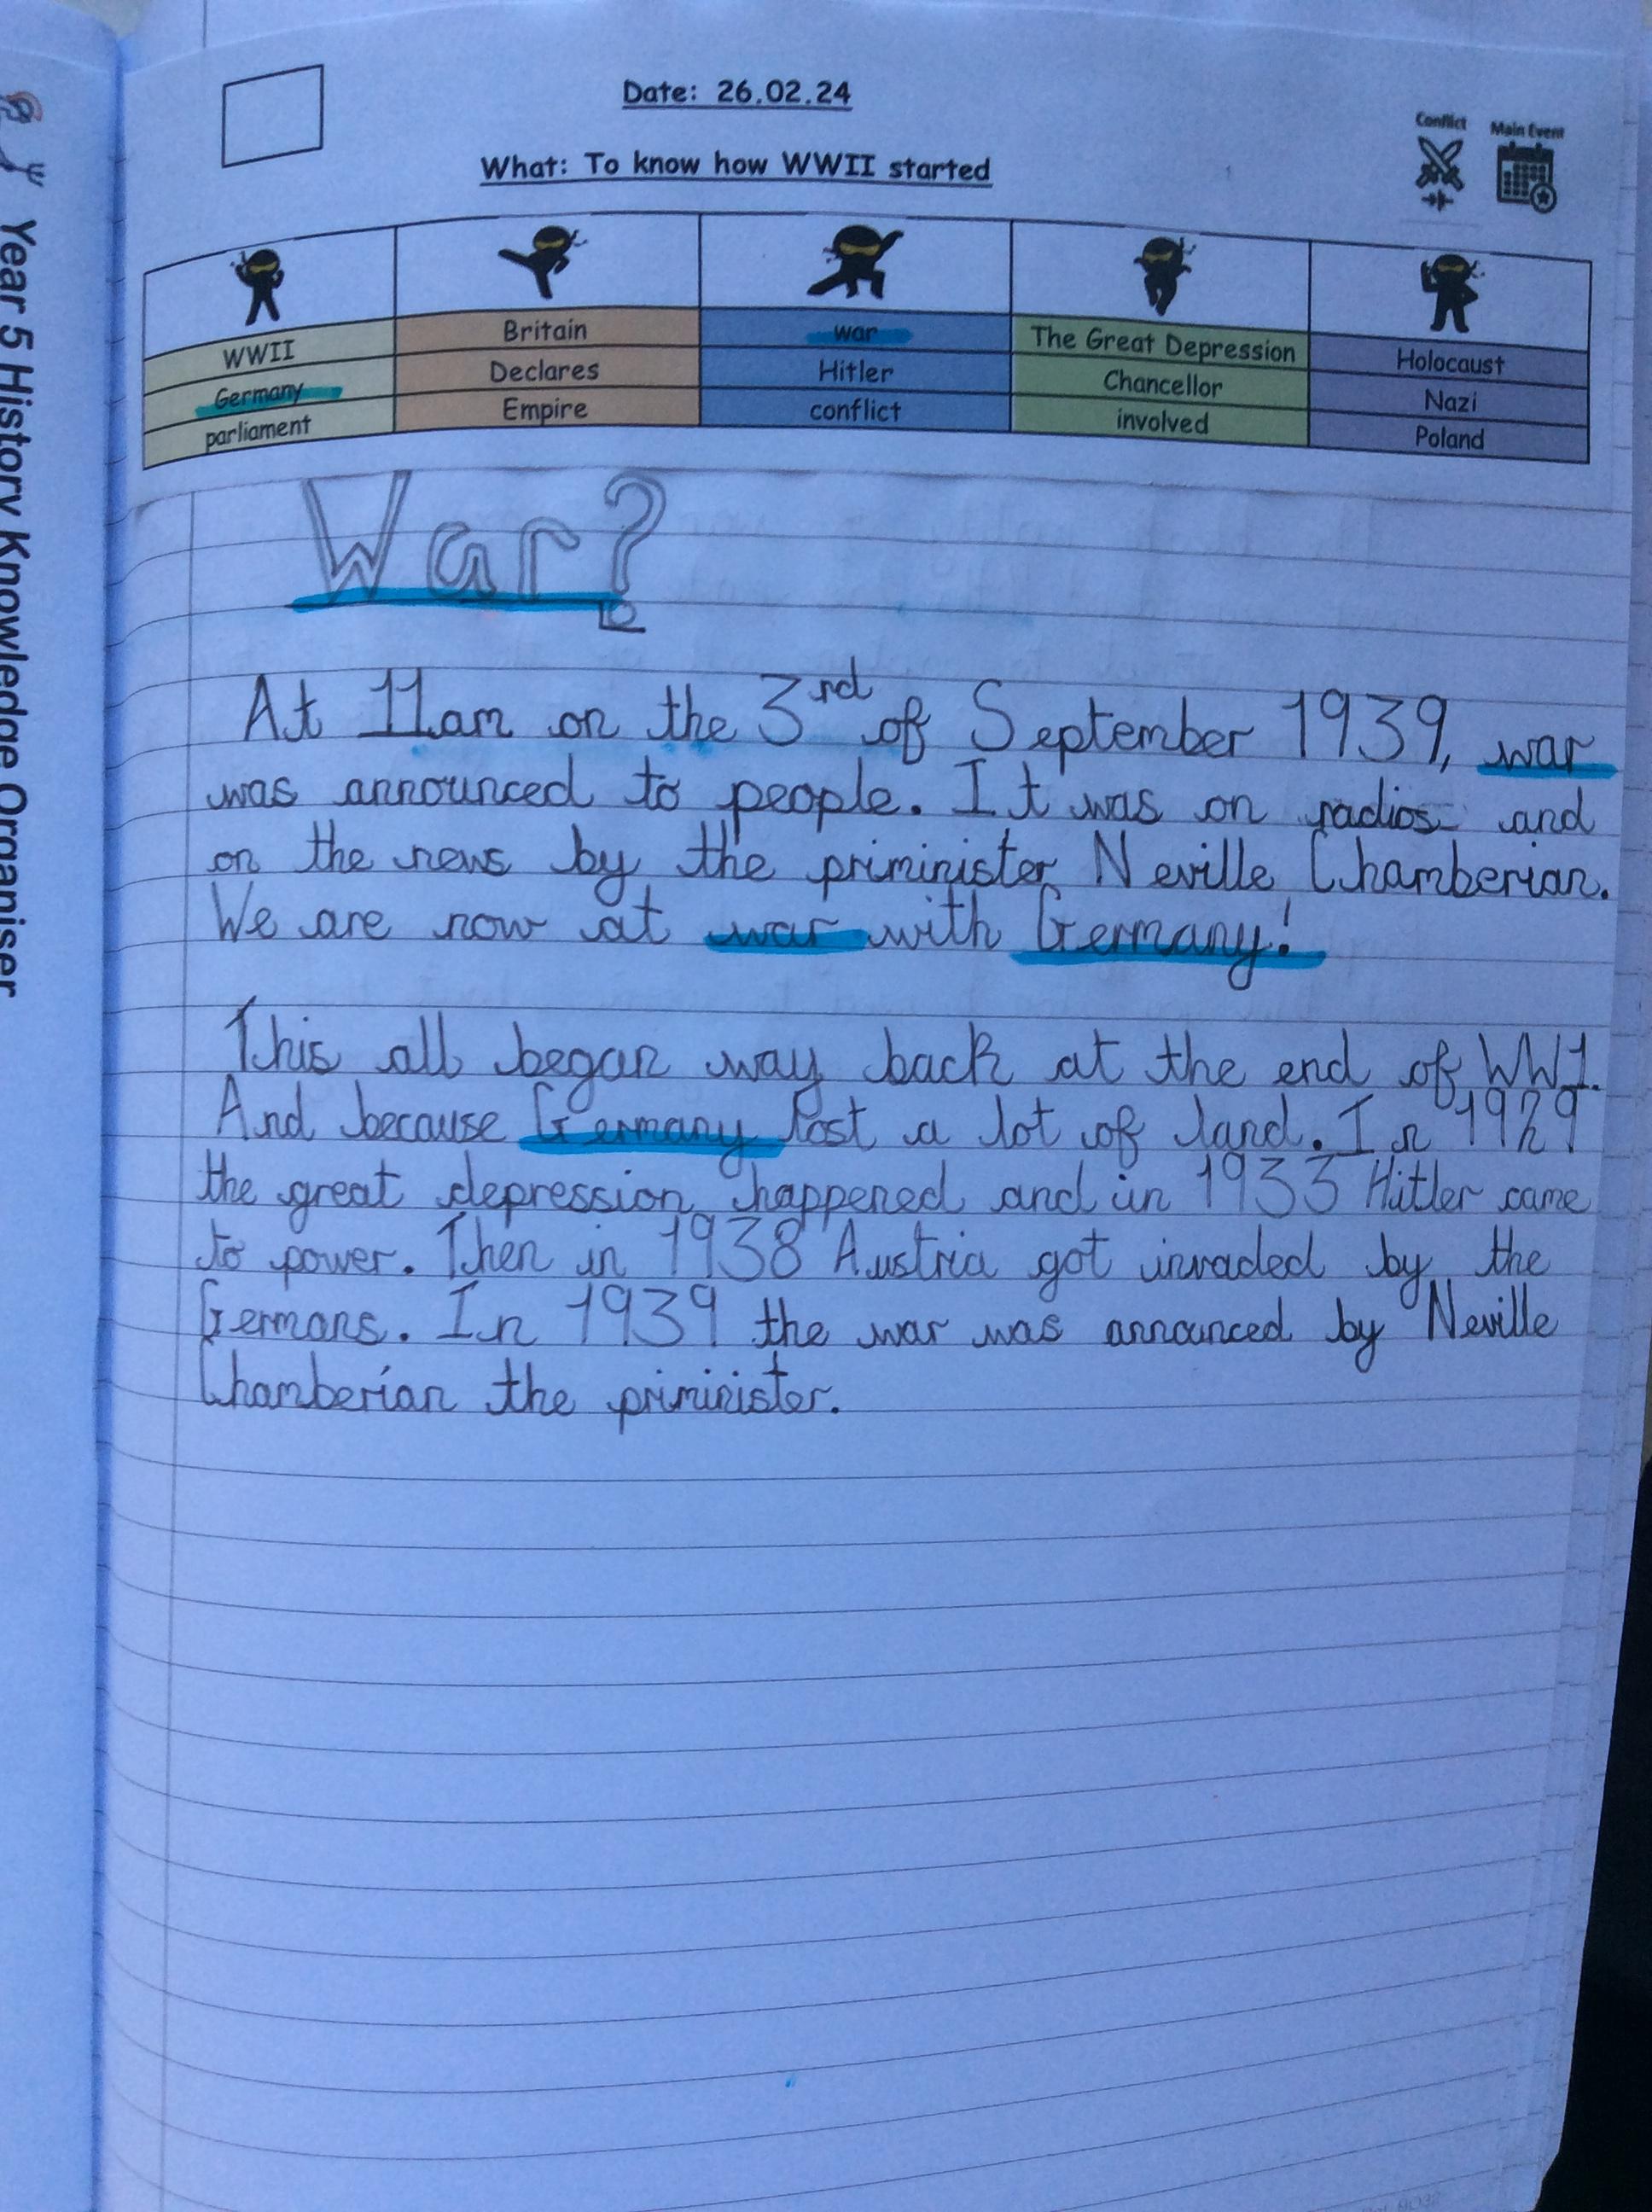 Date: 26.02.24
What: To know how WWII started
Conflict
Main Event
WWII
Germany
parliament
Britain
Declares
Empire
war
Hitler
conflict
The Great Depression
Chancellor
involved
Holocaust
Nazi
Poland
War?
At 11am on the 3rd of September 1939, war
was announced to people. It was on radios and
on the news by the priminister Neville Chamberian.
We are now at war with Germany!
This all began way back at the end of WW1.
And because Germany lost a lot of land. In 1929
the great depression happened and in 1933 Hitler came
to power. Then in 1938 Austria got invaded by the
Germans. In 1939 the war was announced by Neville
Chamberian the priminister.
Year 5 History Knowledge Organiser